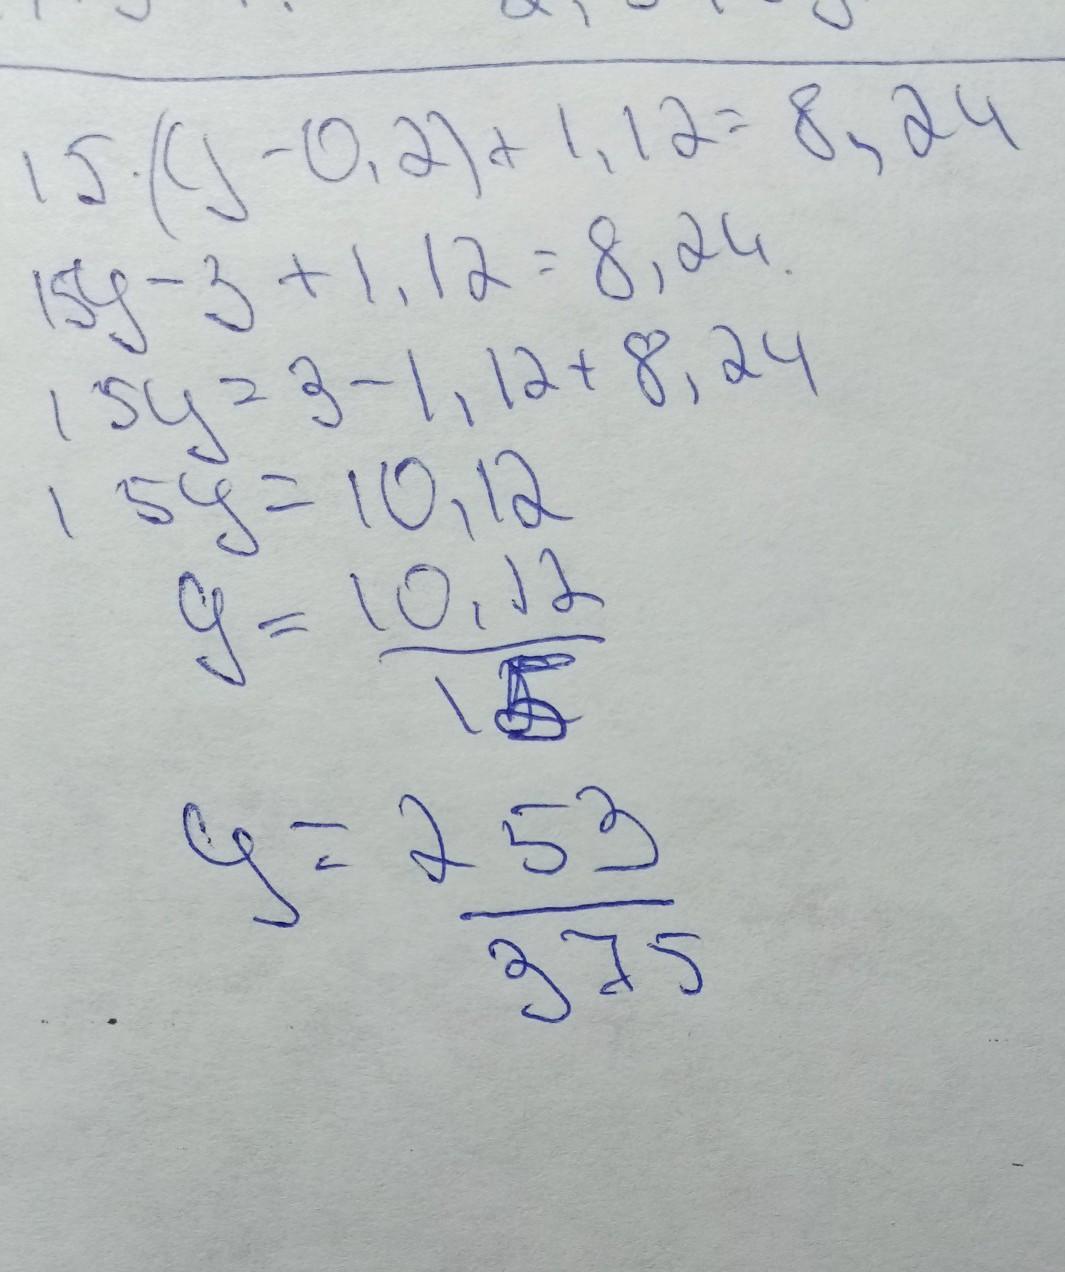 15·(y-0,2)+1,12=8,24
15y-3+1,12=8,24.
15y=3-1,12+8,24
15y=10,12
y=10,12/15
y=253/375